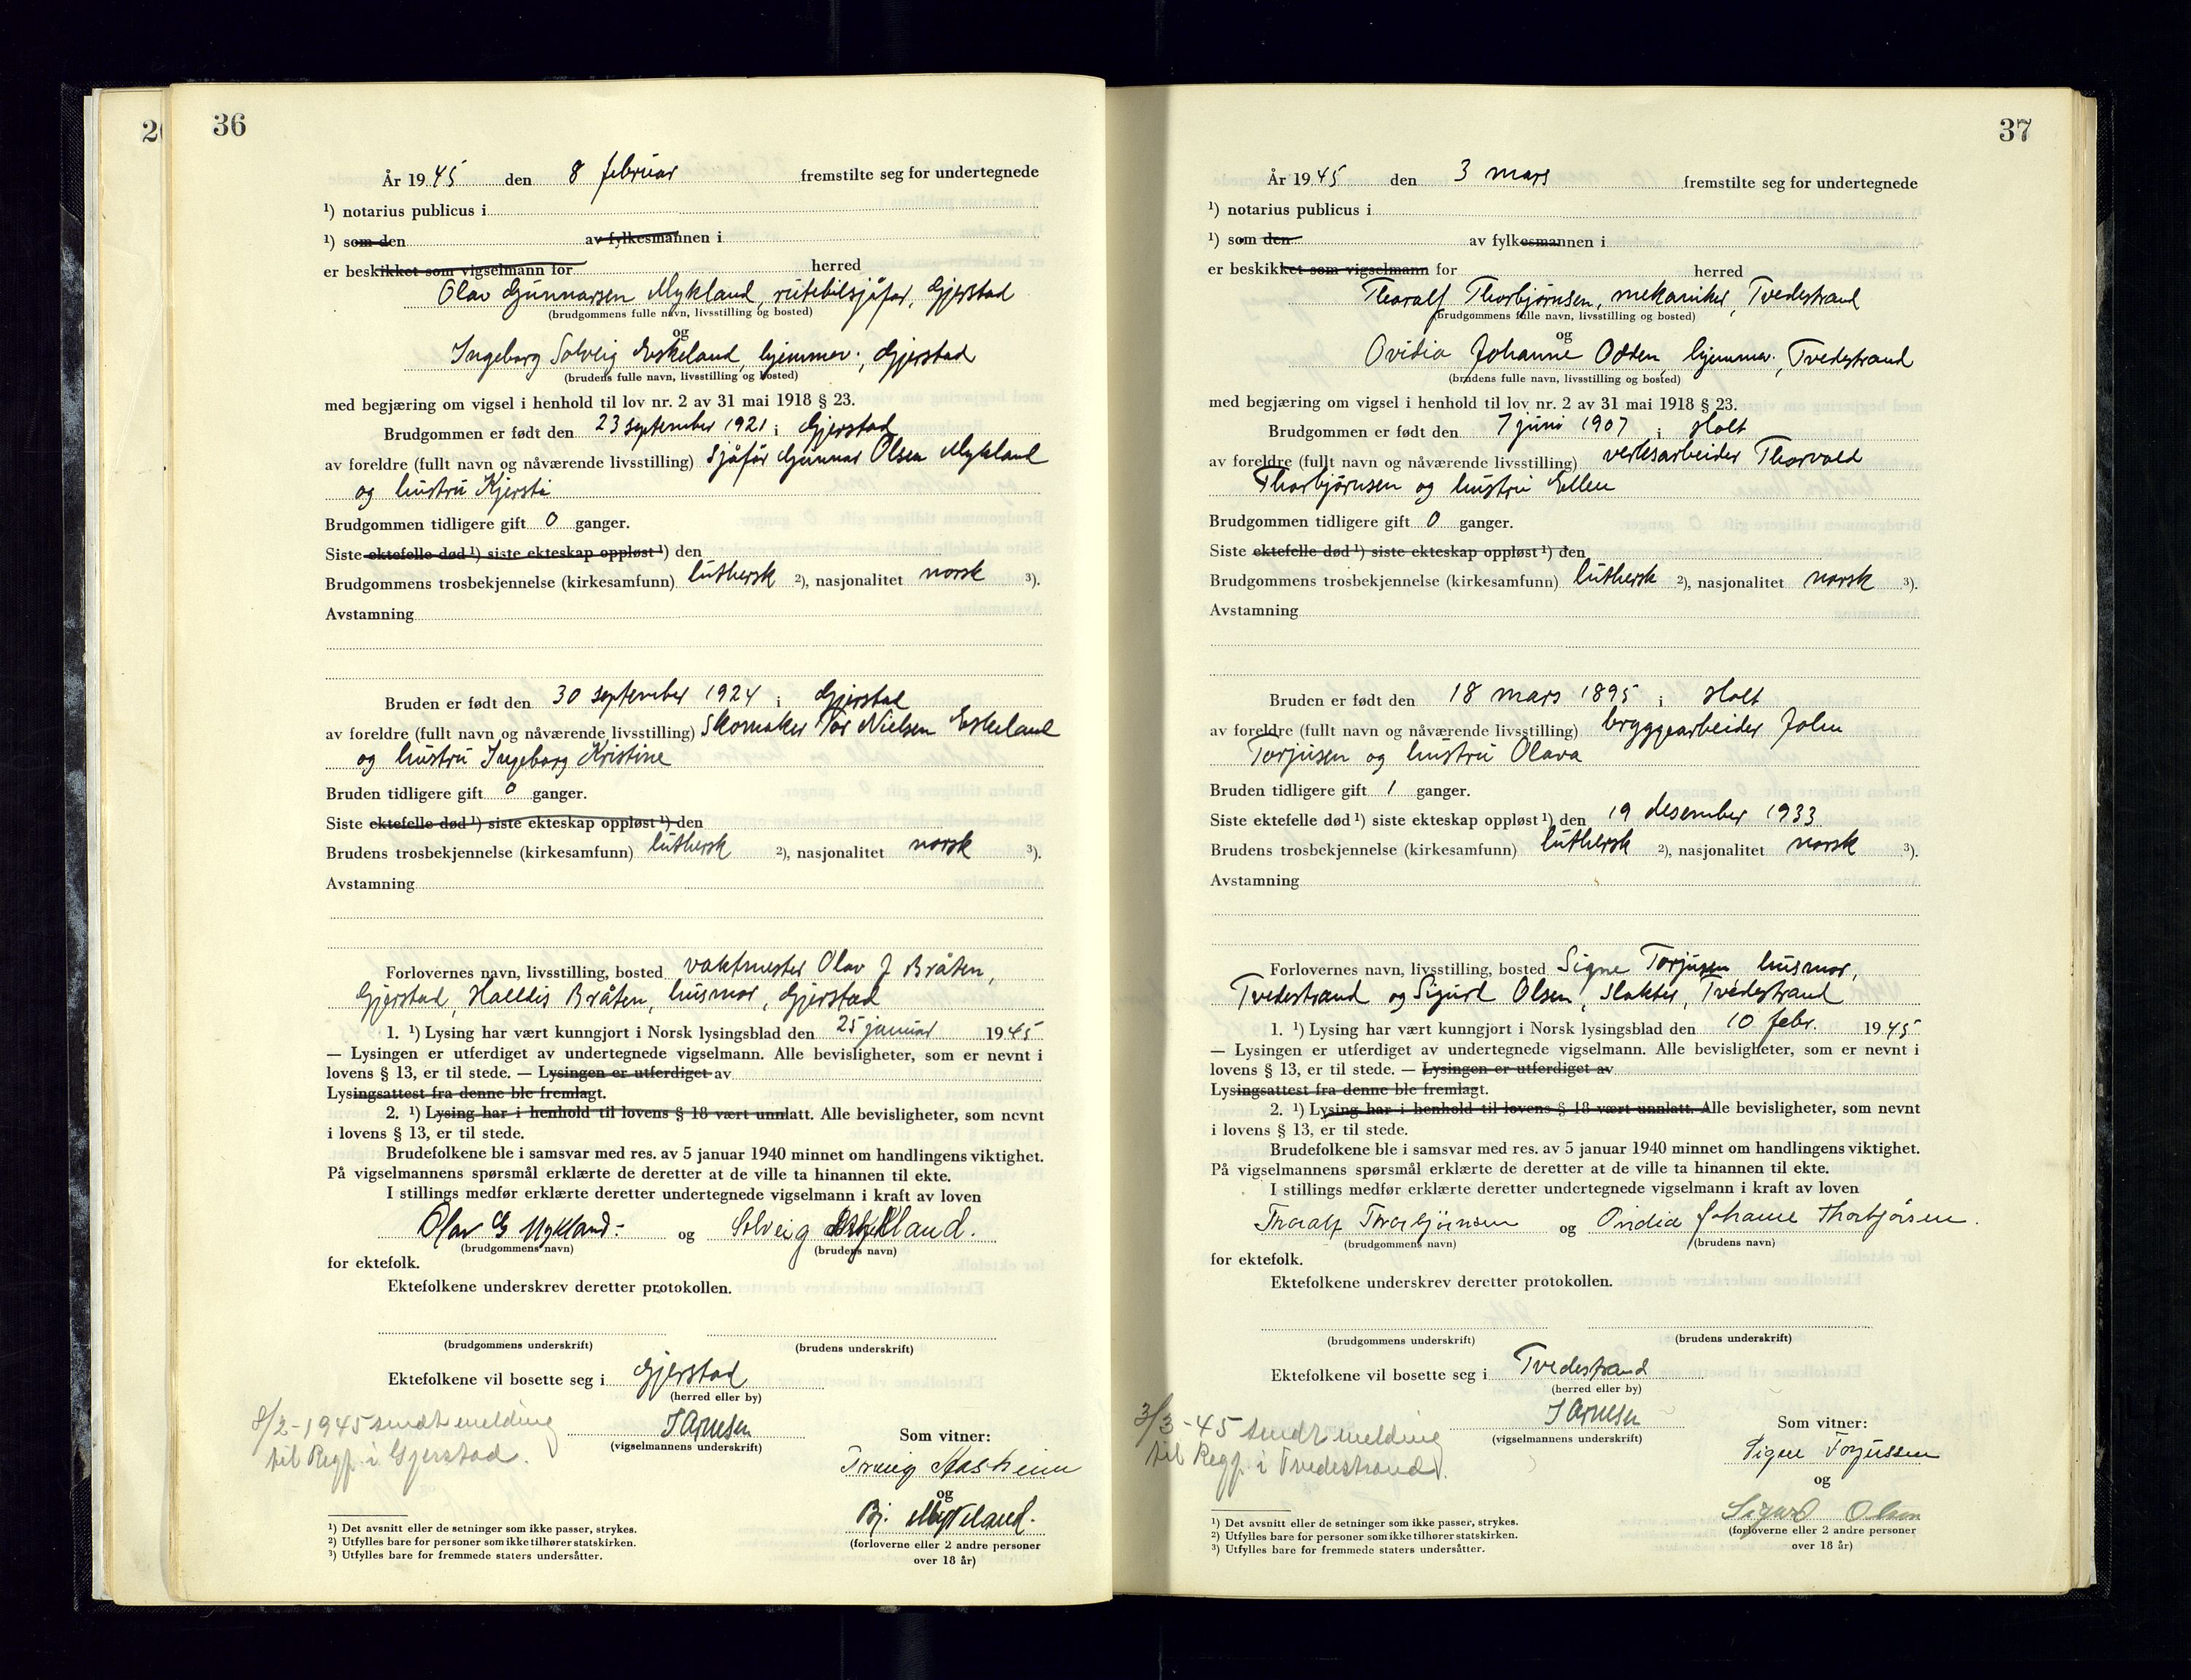 36
År 1945 den 8 februar fremstilte seg for undertegnede
¹) notarius publicus i
¹) som den av fylkesmannen i
er beskikket som vigselmann for herred
Olav Gunnarsen Mykland, rutebilsjåfør, Gjerstad
(brudgommens fulle navn, livsstilling og bosted)
og
Ingeborg Solveig Eskeland, hjemmev., Gjerstad
(brudens fulle navn, livsstilling og bosted)
med begjæring om vigsel i henhold til lov nr. 2 av 31 mai 1918 § 23.
Brudgommen er født den 23 september 1921 i Gjerstad
av foreldre (fullt navn og nåværende livsstilling) sjåfør Gunnar Olsen Mykland
og hustru Kjersti
Brudgommen tidligere gift 0 ganger.
Siste ektefelle død ¹) siste ekteskap oppløst ¹) den
Brudgommens trosbekjennelse (kirkesamfunn) luthersk ²), nasjonalitet norsk ³).
Avstamning
Bruden er født den 30 september 1924 i Gjerstad
av foreldre (fullt navn og nåværende livsstilling) Skomaker Tor Nielsen Eskeland
og hustru Ingeborg Kristine
Bruden tidligere gift 0 ganger.
Siste ektefelle død ¹) siste ekteskap oppløst ¹) den
Brudens trosbekjennelse (kirkesamfunn) luthersk ²), nasjonalitet norsk ³).
Avstamning
Forlovernes navn, livsstilling, bosted vaktmester Olav J Bråten,
Gjerstad, Halldis Bråten, husmor, Gjerstad
1. ¹) Lysing har vært kunngjort i Norsk lysingsblad den 25 januar 1945
— Lysingen er utferdiget av undertegnede vigselmann. Alle bevisligheter, som er nevnt i
lovens § 13, er til stede. — Lysingen er utferdiget av
Lysingsattest fra denne ble fremlagt.
2. ¹) Lysing har i henhold til lovens § 18 vært unnlatt. Alle bevisligheter, som nevnt
i lovens § 13, er til stede.
Brudefolkene ble i samsvar med res. av 5 januar 1940 minnet om handlingens viktighet.
På vigselmannens spørsmål erklærte de deretter at de ville ta hinannen til ekte.
I stillings medfør erklærte deretter undertegnede vigselmann i kraft av loven
Olav G Mykland. og Solveig Mykland.
(brudgommens navn) (brudens navn)
for ektefolk.
Ektefolkene underskrev deretter protokollen.
(brudgommens underskrift) (brudens underskrift)
Ektefolkene vil bosette seg i Gjerstad
(herred eller by)
8/2-1945 sendt melding
til Regf. i Gjerstad.
J Arnesen
(vigselmannens underskrift)
Som vitner:
og
Bj. Mykland.
(forloverne eller 2 andre personer
over 18 år)
¹) Det avsnitt eller de setninger som ikke passer, strykes.
²) Utfylles bare for personer som ikke tilhører statskirken.
³) Utfylles bare for fremmede staters undersåtter.
37
År 1945 den 3 mars fremstilte seg for undertegnede
¹) notarius publicus i
¹) som den av fylkesmannen i
er beskikket som vigselmann for herred
Thoralf Thorbjørnsen, mekaniker, Tvedestrand
(brudgommens fulle navn, livsstilling og bosted)
og
Ovidia Johanne Odden, hjemmev., Tvedestrand
(brudens fulle navn, livsstilling og bosted)
med begjæring om vigsel i henhold til lov nr. 2 av 31 mai 1918 § 23.
Brudgommen er født den 7 juni 1907 i Holt
av foreldre (fullt navn og nåværende livsstilling) verksarbeider Thorvald
Thorbjørnsen og hustru Ellen
Brudgommen tidligere gift 0 ganger.
Siste ektefelle død ¹) siste ekteskap oppløst ¹) den
Brudgommens trosbekjennelse (kirkesamfunn) luthersk ²), nasjonalitet norsk ³).
Avstamning
Bruden er født den 18 mars 1895 i Holt
av foreldre (fullt navn og nåværende livsstilling) bryggearbeider John
Torjusen og hustru Olava
Bruden tidligere gift 1 ganger.
Siste ektefelle død ¹) siste ekteskap oppløst ¹) den 19 desember 1933
Brudens trosbekjennelse (kirkesamfunn) luthersk ²), nasjonalitet norsk ³).
Avstamning
Forlovernes navn, livsstilling, bosted Signe Torjusen husmor,
Tvedestrand og Sigurd Olsen, slakter, Tvedestrand
1. ¹) Lysing har vært kunngjort i Norsk lysingsblad den 10 febr. 1945
— Lysingen er utferdiget av undertegnede vigselmann. Alle bevisligheter, som er nevnt i
lovens § 13, er til stede. — Lysingen er utferdiget av
Lysingsattest fra denne ble fremlagt.
2. ¹) Lysing har i henhold til lovens § 18 vært unnlatt. Alle bevisligheter, som nevnt
i lovens § 13, er til stede.
Brudefolkene ble i samsvar med res. av 5 januar 1940 minnet om handlingens viktighet.
På vigselmannens spørsmål erklærte de deretter at de ville ta hinannen til ekte.
I stillings medfør erklærte deretter undertegnede vigselmann i kraft av loven
Thoralf Thorbjørnsen og Ovidia Johanne Thorbjørnsen.
(brudgommens navn) (brudens navn)
for ektefolk.
Ektefolkene underskrev deretter protokollen.
(brudgommens underskrift) (brudens underskrift)
Ektefolkene vil bosette seg i Tvedestrand
(herred eller by)
3/3-45 sendt melding
til Regf. i Tvedestrand.
J Arnesen
(vigselmannens underskrift)
Som vitner:
Signe Torjussen
og
Sigurd Olsen
(forloverne eller 2 andre personer
over 18 år)
¹) Det avsnitt eller de setninger som ikke passer, strykes.
²) Utfylles bare for personer som ikke tilhører statskirken.
³) Utfylles bare for fremmede staters undersåtter.